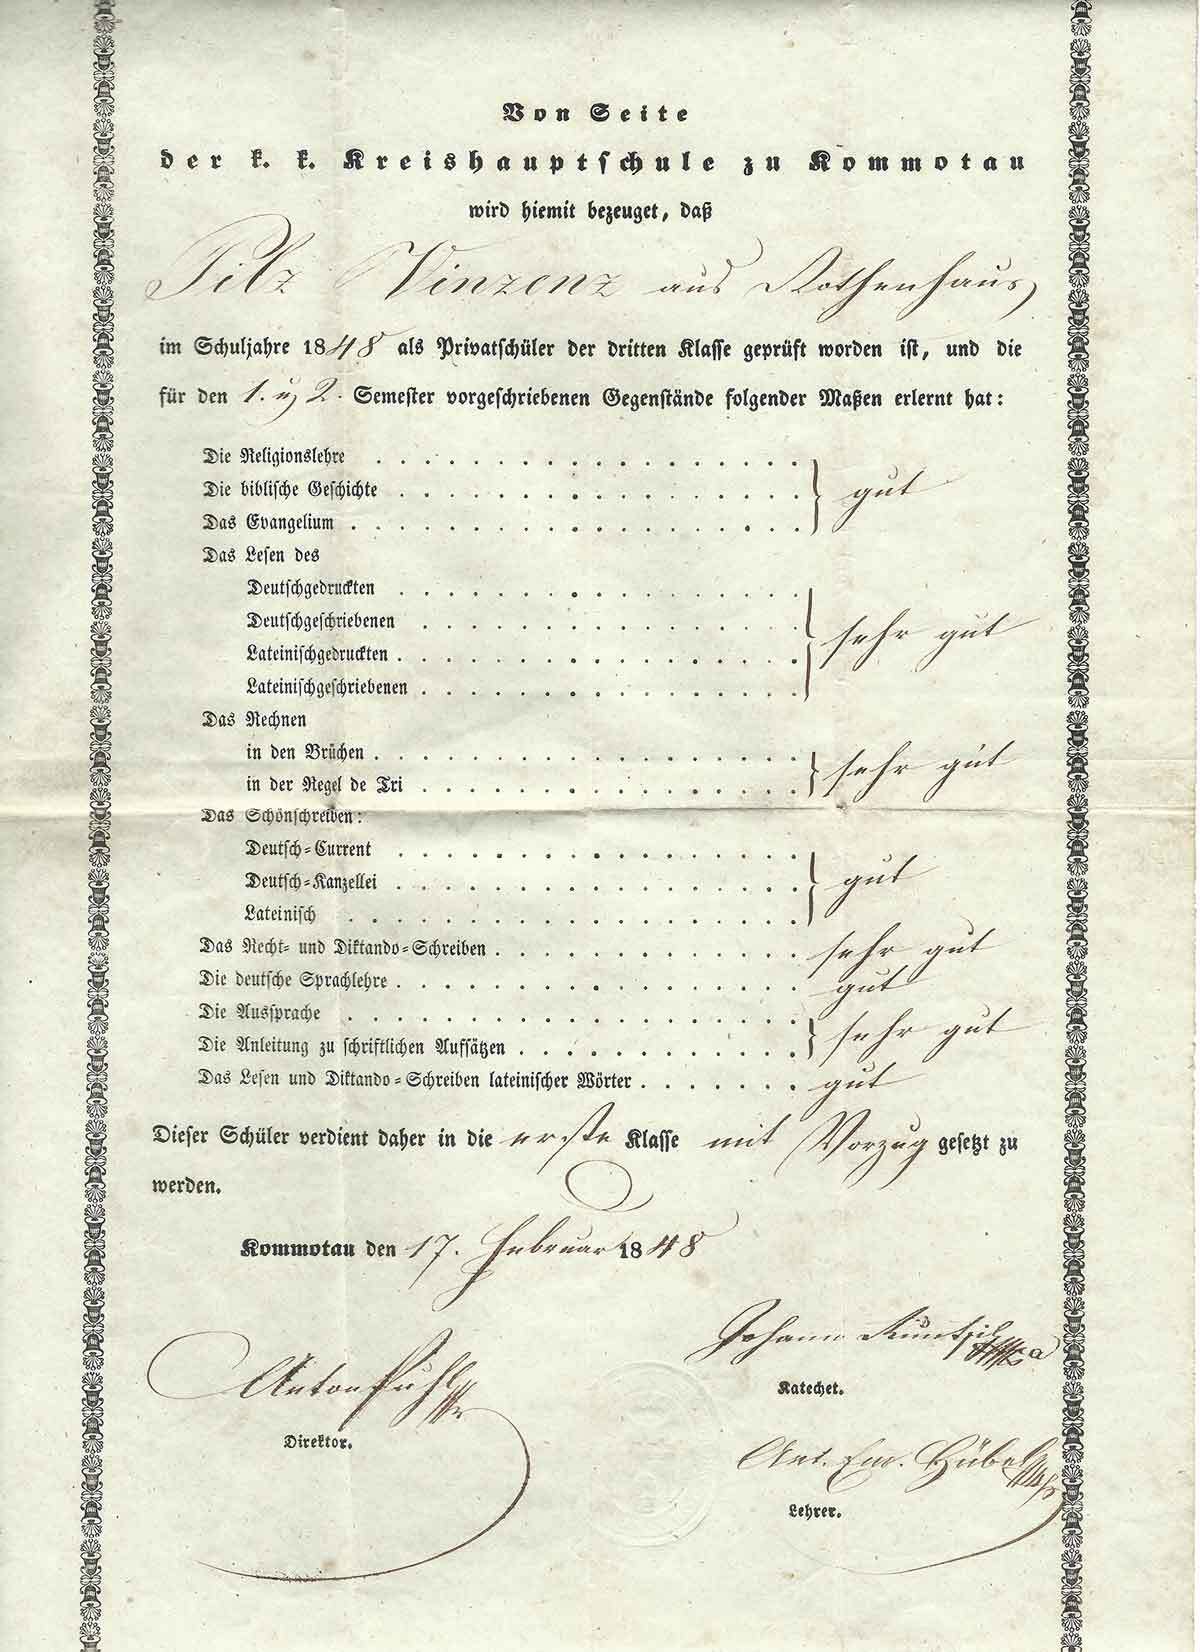 Von Seite
der k. k. Kreishauptschule zu Kommotau
wird hiemit bezeuget, daß
Pilz Vinzenz aus Rothenhaus
im Schuljahre 1848 als Privatschüler der dritten Klasse geprüft worden ist, und die
für den 1. u 2. Semester vorgeschriebenen Gegenstände folgender Maßen erlernt hat:
Die Religionslehre
Die biblische Geschichte gut
Das Evangelium
Das Lesen des
Deutschgedruckten
Deutschgeschriebenen sehr gut
Lateinischgedruckten
Lateinischgeschriebenen
Das Rechnen
in den Brüchen sehr gut
in der Regel de Tri
Das Schönschreiben:
Deutsch-Current
Deutsch-Kanzellei gut
Lateinisch
Das Recht- und Diktando-Schreiben sehr gut
Die deutsche Sprachlehre gut
Die Aussprache sehr gut
Die Anleitung zu schriftlichen Aufsätzen
Das Lesen und Diktando-Schreiben lateinischer Wörter gut
Dieser Schüler verdient daher in die erste Klasse mit Vorzug gesetzt zu
werden.
Kommotau den 17. Februar 1848
Johann
Katechet.
Anton Puhl
Direktor.
Ant. Em. Hübel
Lehrer.